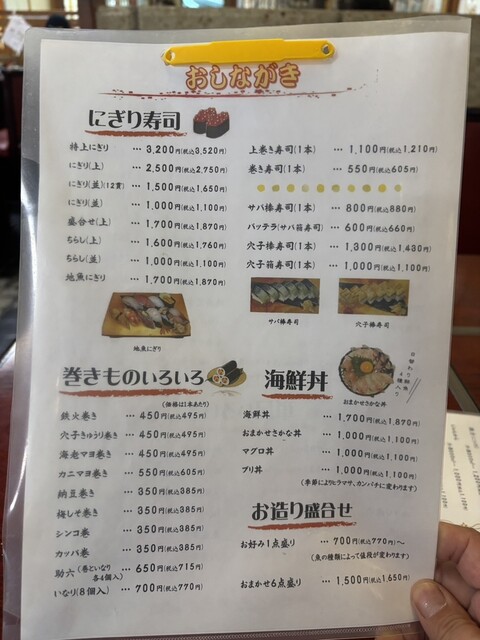 おしながき
にぎり寿司
特上にぎり … 3,200円(税込3,520円)
にぎり(上) … 2,500円(税込2,750円)
にぎり(並)(12貫) … 1,500円(税込1,650円)
にぎり(並) … 1,000円(税込1,100円)
盛合せ(上) … 1,700円(税込1,870円)
ちらし(上) … 1,600円(税込1,760円)
ちらし(並) … 1,000円(税込1,100円)
地魚にぎり … 1,700円(税込1,870円)
地魚にぎり
上巻き寿司(1本) … 1,100円(税込1,210円)
巻き寿司(1本) … 550円(税込605円)
サバ棒寿司(1本) … 800円(税込880円)
バッテラ(サバ箱寿司) … 600円(税込660円)
穴子棒寿司(1本) … 1,300円(税込1,430円)
穴子箱寿司(1本) … 1,000円(税込1,100円)
サバ棒寿司
穴子棒寿司
巻きものいろいろ
(価格は1本あたり)
鉄火巻き … 450円(税込495円)
穴子きゅうり巻き … 450円(税込495円)
海老マヨ巻き … 450円(税込495円)
カニマヨ巻き … 550円(税込605円)
納豆巻き … 350円(税込385円)
梅しそ巻き … 350円(税込385円)
シンコ巻 … 350円(税込385円)
カッパ巻 … 350円(税込385円)
助六(巻といなり各4個入) … 650円(税込715円)
いなり(8個入) … 700円(税込770円)
海鮮丼
おまかせさかな丼
日替わり鮮魚
4種入り
海鮮丼 … 1,700円(税込1,870円)
おまかせさかな丼 … 1,000円(税込1,100円)
マグロ丼 … 1,000円(税込1,100円)
ブリ丼 … 1,000円(税込1,100円)
(季節によりヒラマサ、カンパチに変わります)
お造り盛合せ
お好み1点盛り … 700円(税込770円)〜
(魚の種類によって値段が変わります)
おまかせ6点盛り … 1,500円(税込1,650円)